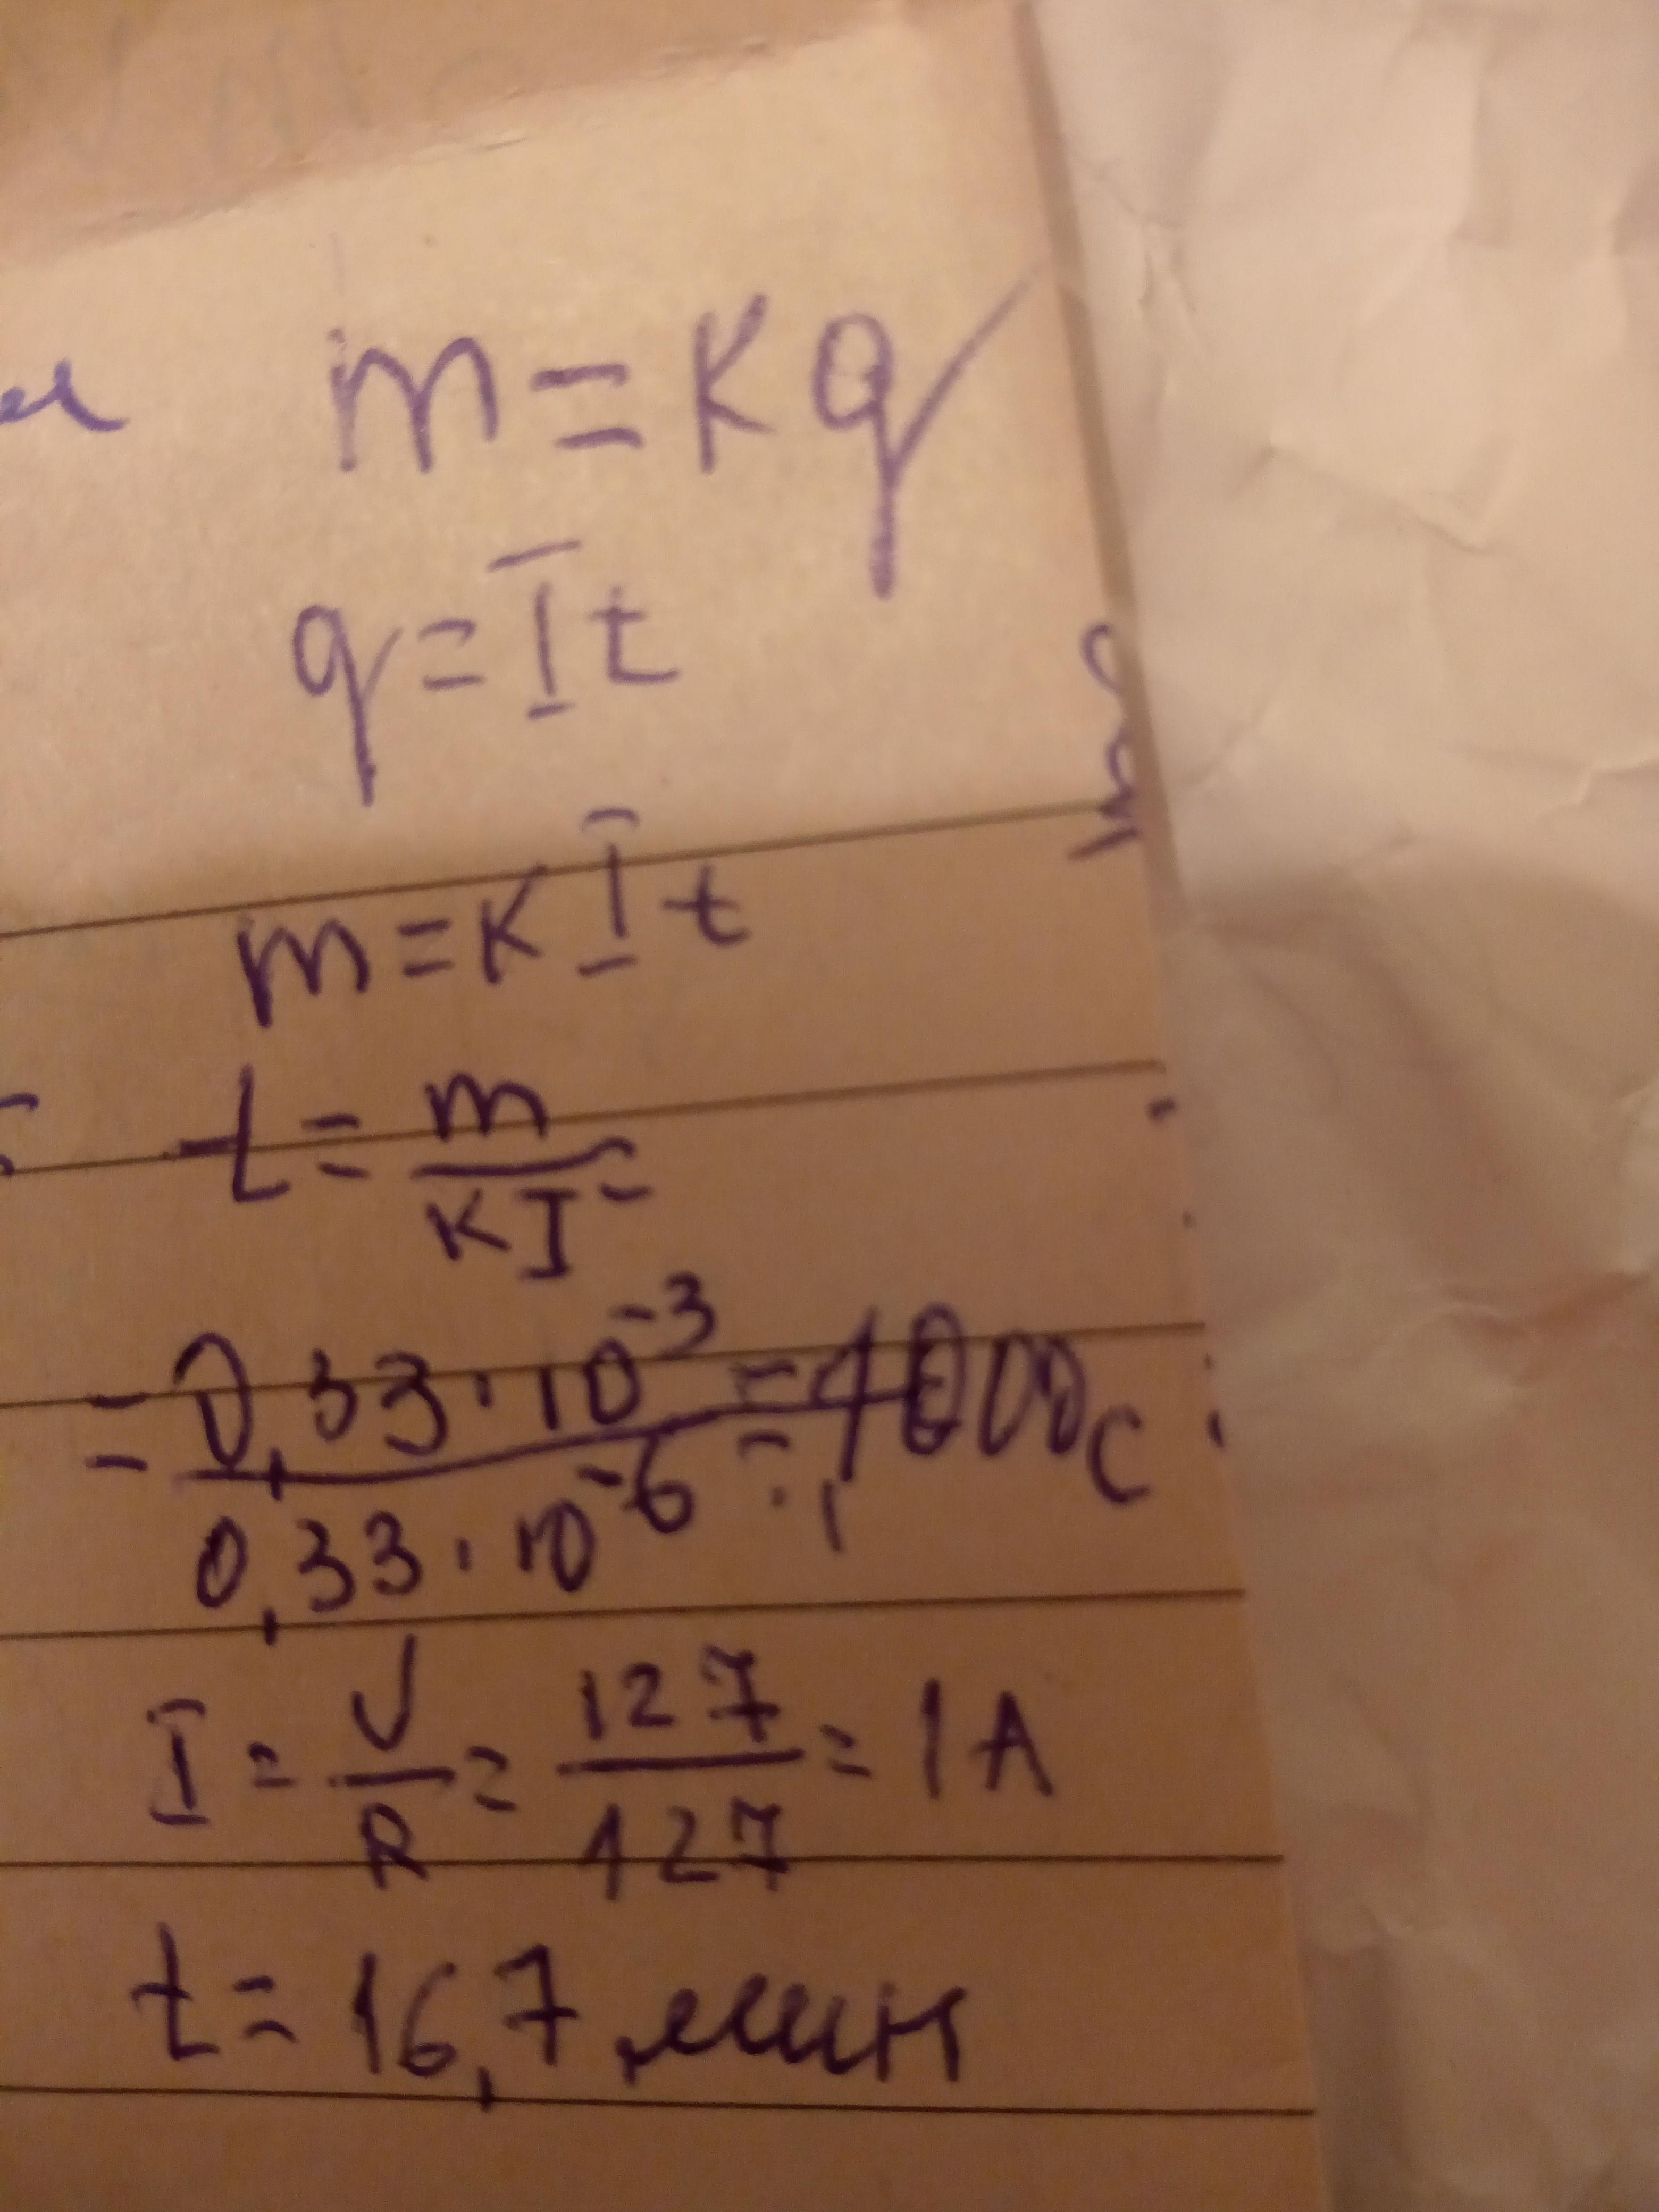 m = kq
q = It
m = kIt
t = m / kI =
= 0,33 · 10⁻³ / 0,33 · 10⁻⁶ · 1 = 1000 с
I = U / R = 127 / 127 = 1 А
t = 16,7 мин